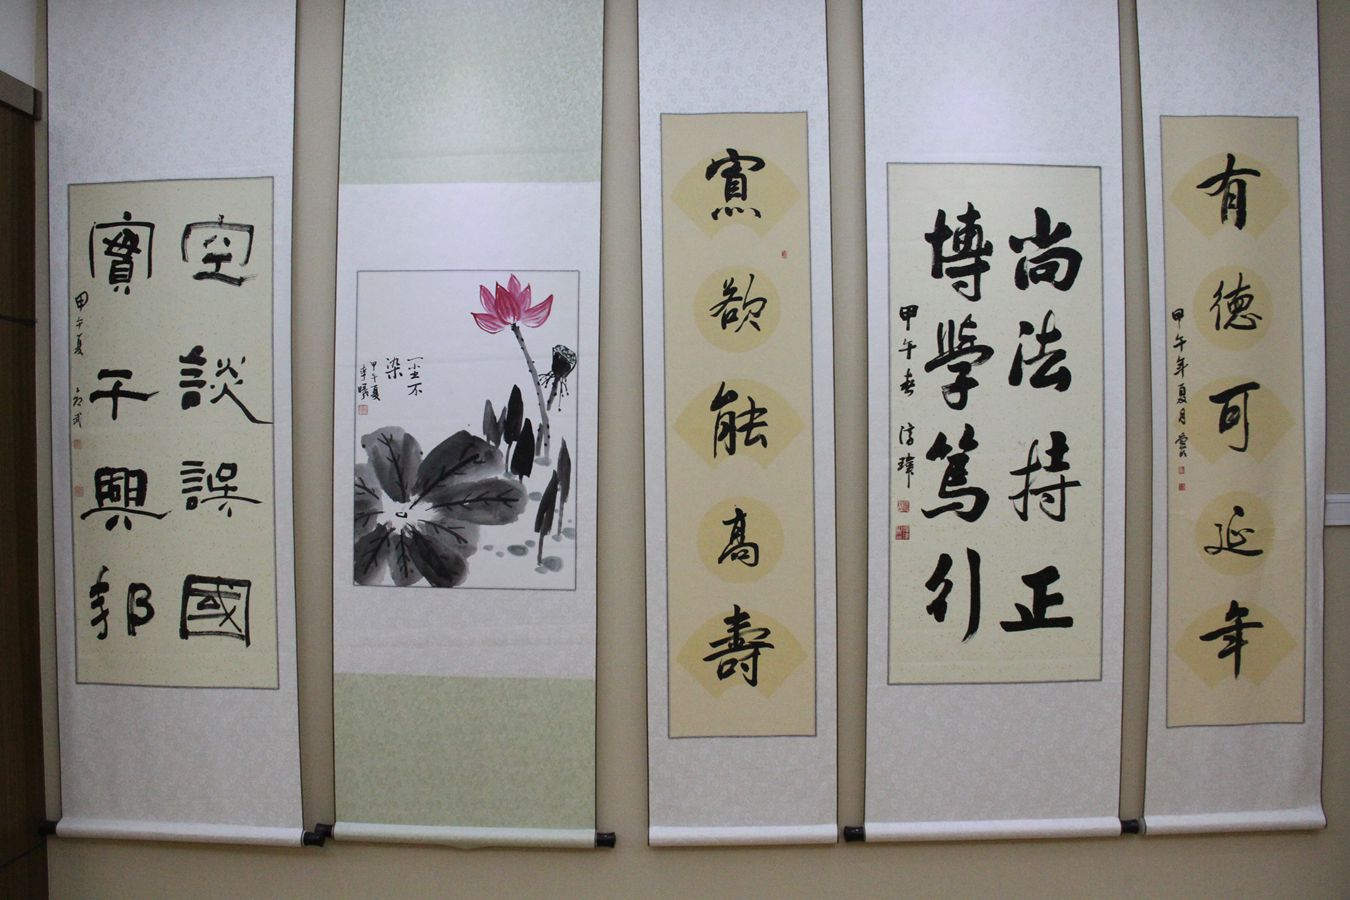 有德可延年
甲午年夏月
尚法持正
博學篤行
甲午春
寡欲能高壽
一尘不
染
甲午夏
李曦
空談誤國
實干興邦
甲午夏